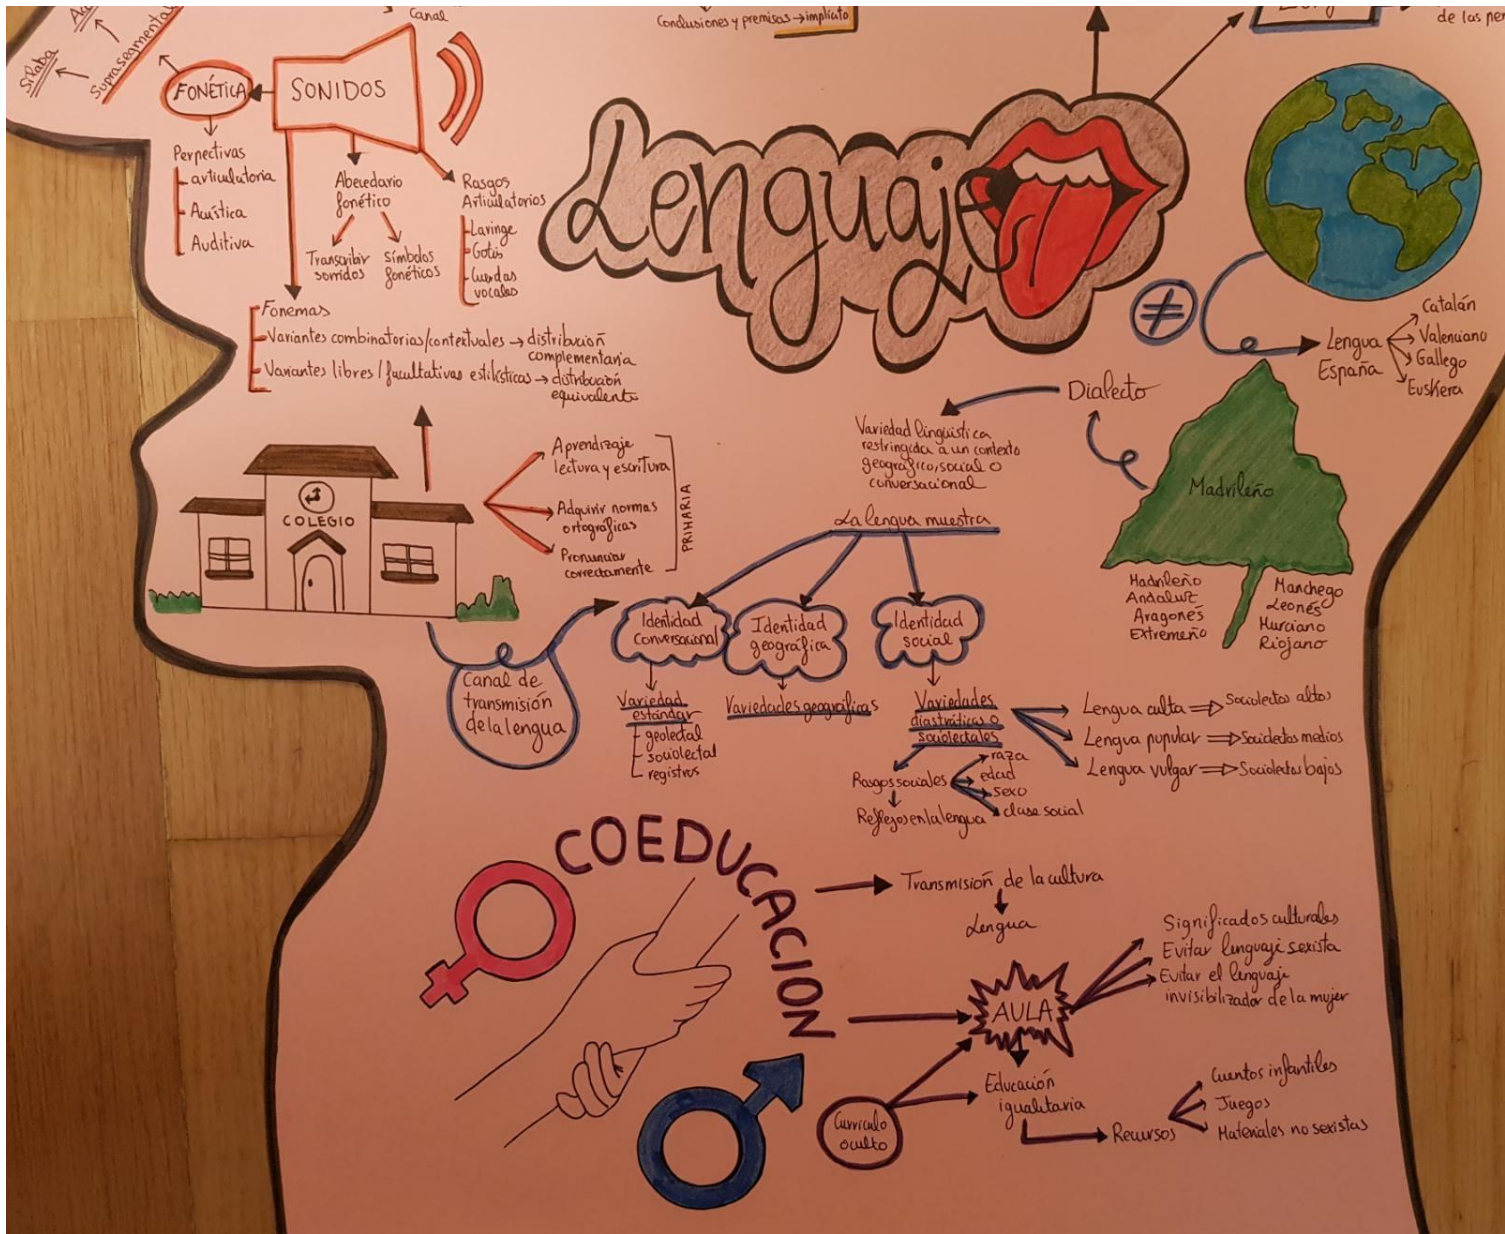 Canal
Conclusiones y premisas → implícito
de las per
Sílaba
Suprasegmental
FONÉTICA
SONIDOS
Perpectivas
articulatoria
Acústica
Auditiva
Abecedario
fonético
Transcribir
sonidos
Símbolos
fonéticos
Rasgos
Articulatorios
Laringe
Gotis
Cuerdas
vocales
Fonemas
Variantes combinatorias/contextuales → distribución
complementaria
Variantes libres/facultativas estilísticas → distribución
equivalente
Lenguaje
≠
Lengua
España
Catalán
Valenciano
Gallego
Euskera
Dialecto
Variedad lingüística
restringida a un contexto
geográfico, social o
conversacional
Madrileño
Madrileño
Andaluz
Aragonés
Extremeño
Manchego
Leonés
Murciano
Riojano
COLEGIO
Aprendizaje
lectura y escritura
Adquirir normas
ortográficas
Pronunciar
correctamente
PRIMARIA
La lengua muestra
Canal de
transmisión
de la lengua
Identidad
conversacional
Identidad
geográfica
Identidad
social
Variedad
estándar
geolectal
sociolectal
registros
Variedades geográficas
Variedades
diastráticas o
sociolectales
Lengua culta ⇒ Sociolectos altos
Lengua popular ⇒ Sociolectos medios
Lengua vulgar ⇒ Sociolectos bajos
Rasgos sociales
raza
edad
sexo
clase social
Reflejos en la lengua
COEDUCACION
Transmisión de la cultura
Lengua
AULA
Significados culturales
Evitar lenguaje sexista
Evitar el lenguaje
invisibilizador de la mujer
Currículo
oculto
Educación
igualitaria
Recursos
Cuentos infantiles
Juegos
Materiales no sexistas